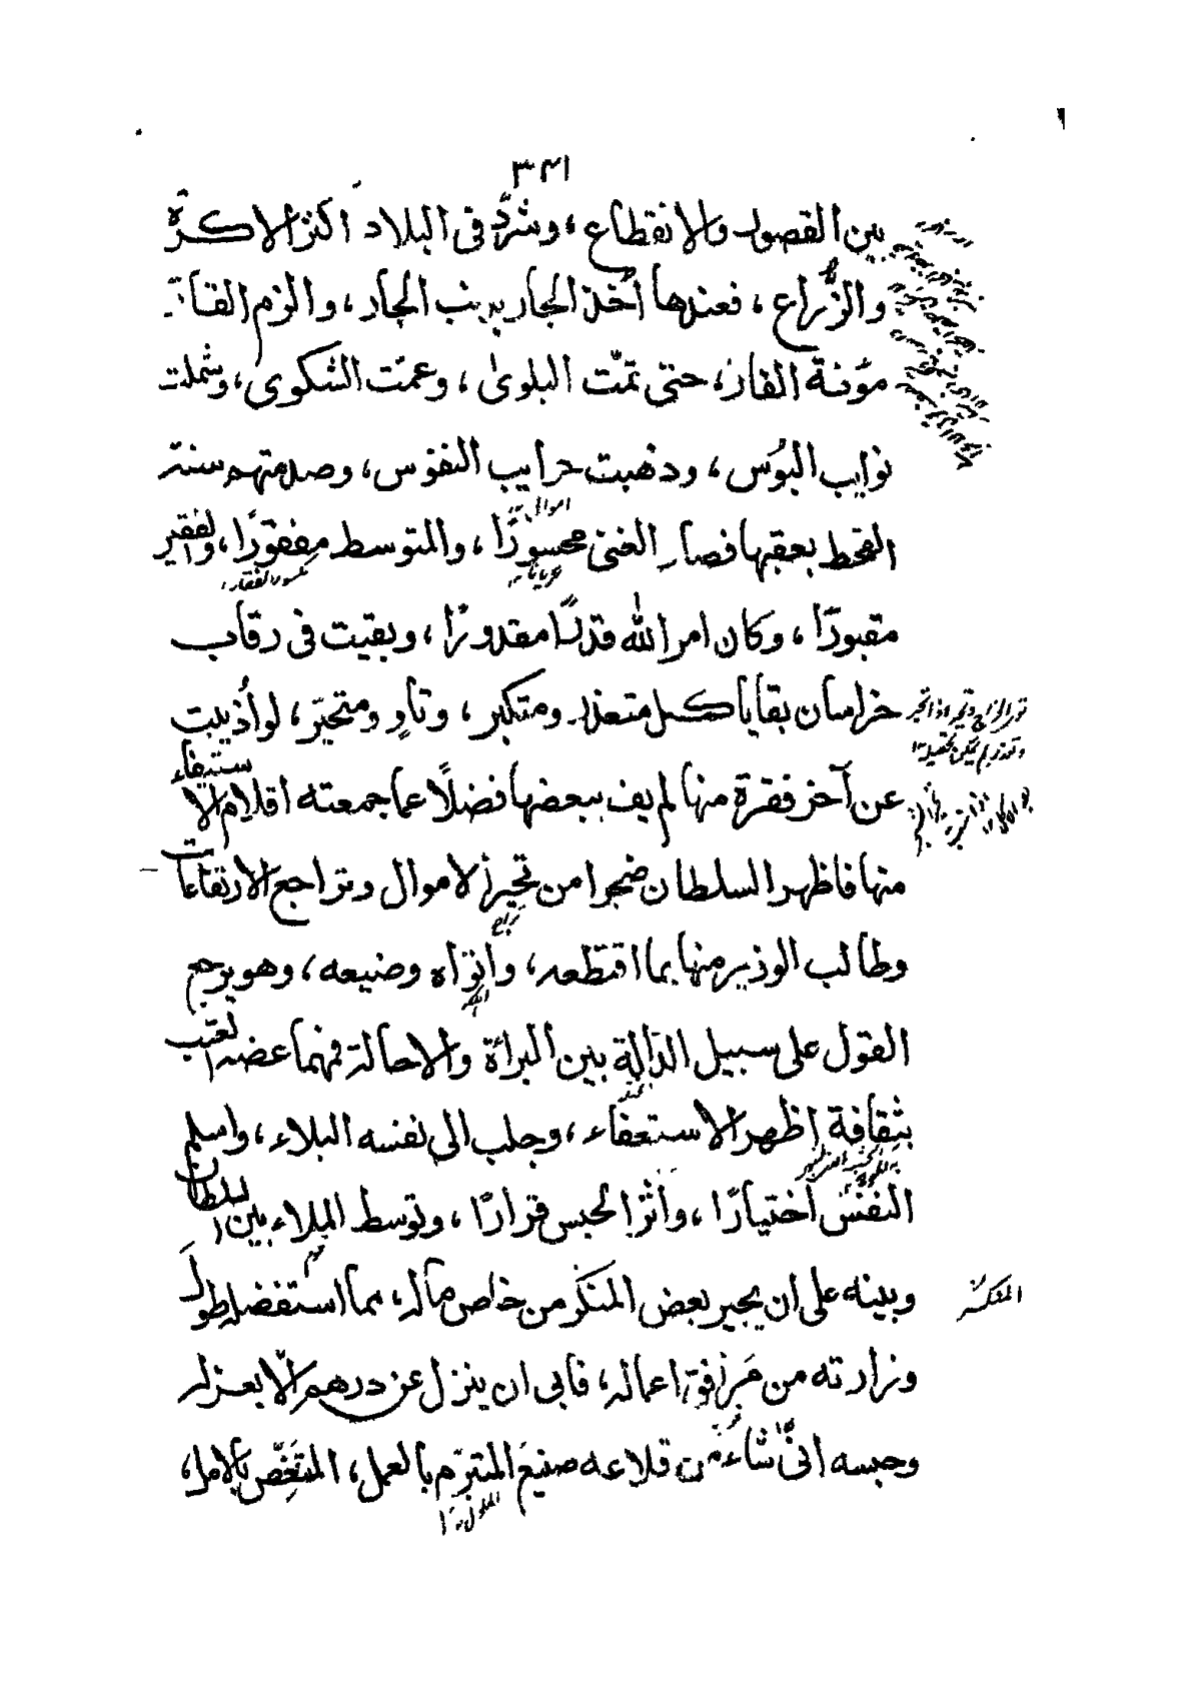 ٣٤١
بين القصور والانقطاع، وشرّد فى البلاد اكثر الاكرة
والزُّراع، فعندها أخذ الجار بذنب الجار، والزم القناة
مؤنة الفار، حتى تمّت البلوىٰ، وعمّت الشكوى، وشملت
نوايب البؤس، وذهبت حرايب النفوس، وصدمتهم سنة
القحط بعقبها فصار الغنى محسورًا، والمتوسط مفقورًا، والفقير
مقبورًا، وكان امر الله قدرًا مقدورًا، وبقيت فى رقاب
خراسان بقايا كل متعذر ومتكبر، وتاوٍ ومتحيّر، لو أُذيبت
عن آخر فقرة منها لم يف ببعضها فضلًا عما جمعته اقلام الاستيفاء
منها فاظهر السلطان ضجرا من تحيز الاموال وتراجع الارتفاعات
وطالب الوزير منها بما اقتطعه، واتواه وضيعه، وهو يرجع
القول على سبيل الدالة بين البراة والاحالة فمهما عضه التعب
بثقافة اظهر الاستعفاء، وجلب الى نفسه البلاء، واسلم
النفس اختيارًا، واثر الحبس قرارًا، وتوسط الملاء بين السلطان
وبينه على ان يجبر بعض المنكر من خاص ماله، مما استفضله طول
المنكسر
وزارته من مرافق اعماله، فابى ان ينزل عن درهم الّا بعزله
وحبسه انّى شاء من قلاعه صنيع المتبرّم بالعمل، المتغصّص بالامل،